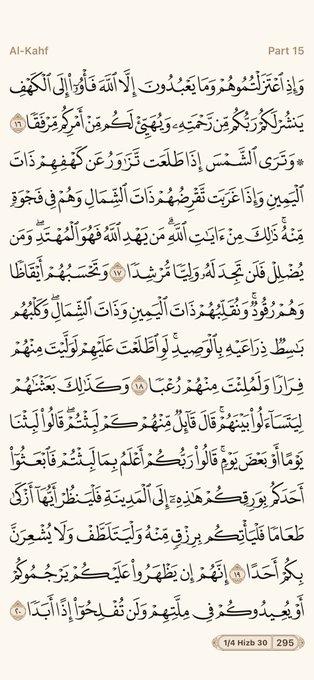 Al-Kahf
Part 15
وَإِذِ ٱعْتَزَلْتُمُوهُمْ وَمَا يَعْبُدُونَ إِلَّا ٱللَّهَ فَأْوُۥٓا۟ إِلَى ٱلْكَهْفِ
يَنشُرْ لَكُمْ رَبُّكُم مِّن رَّحْمَتِهِۦ وَيُهَيِّئْ لَكُم مِّنْ أَمْرِكُم مِّرْفَقًا ١٦
۞ وَتَرَى ٱلشَّمْسَ إِذَا طَلَعَت تَّزَٰوَرُ عَن كَهْفِهِمْ ذَاتَ
ٱلْيَمِينِ وَإِذَا غَرَبَت تَّقْرِضُهُمْ ذَاتَ ٱلشِّمَالِ وَهُمْ فِى فَجْوَةٍ
مِّنْهُ ۚ ذَٰلِكَ مِنْ ءَايَٰتِ ٱللَّهِ ۗ مَن يَهْدِ ٱللَّهُ فَهُوَ ٱلْمُهْتَدِ ۖ وَمَن
يُضْلِلْ فَلَن تَجِدَ لَهُۥ وَلِيًّا مُّرْشِدًا ١٧ وَتَحْسَبُهُمْ أَيْقَاظًا
وَهُمْ رُقُودٌ ۚ وَنُقَلِّبُهُمْ ذَاتَ ٱلْيَمِينِ وَذَاتَ ٱلشِّمَالِ ۖ وَكَلْبُهُم
بَٰسِطٌ ذِرَاعَيْهِ بِٱلْوَصِيدِ ۚ لَوِ ٱطَّلَعْتَ عَلَيْهِمْ لَوَلَّيْتَ مِنْهُمْ
فِرَارًا وَلَمُلِئْتَ مِنْهُمْ رُعْبًا ١٨ وَكَذَٰلِكَ بَعَثْنَٰهُمْ
لِيَتَسَآءَلُوا۟ بَيْنَهُمْ ۚ قَالَ قَآئِلٌ مِّنْهُمْ كَمْ لَبِثْتُمْ ۖ قَالُوا۟ لَبِثْنَا
يَوْمًا أَوْ بَعْضَ يَوْمٍ ۚ قَالُوا۟ رَبُّكُمْ أَعْلَمُ بِمَا لَبِثْتُمْ فَٱبْعَثُوٓا۟
أَحَدَكُم بِوَرِقِكُمْ هَٰذِهِۦٓ إِلَى ٱلْمَدِينَةِ فَلْيَنظُرْ أَيُّهَآ أَزْكَىٰ
طَعَامًا فَلْيَأْتِكُم بِرِزْقٍ مِّنْهُ وَلْيَتَلَطَّفْ وَلَا يُشْعِرَنَّ
بِكُمْ أَحَدًا ١٩ إِنَّهُمْ إِن يَظْهَرُوا۟ عَلَيْكُمْ يَرْجُمُوكُمْ
أَوْ يُعِيدُوكُمْ فِى مِلَّتِهِمْ وَلَن تُفْلِحُوٓا۟ إِذًا أَبَدًا ٢٠
1/4 Hizb 30
295